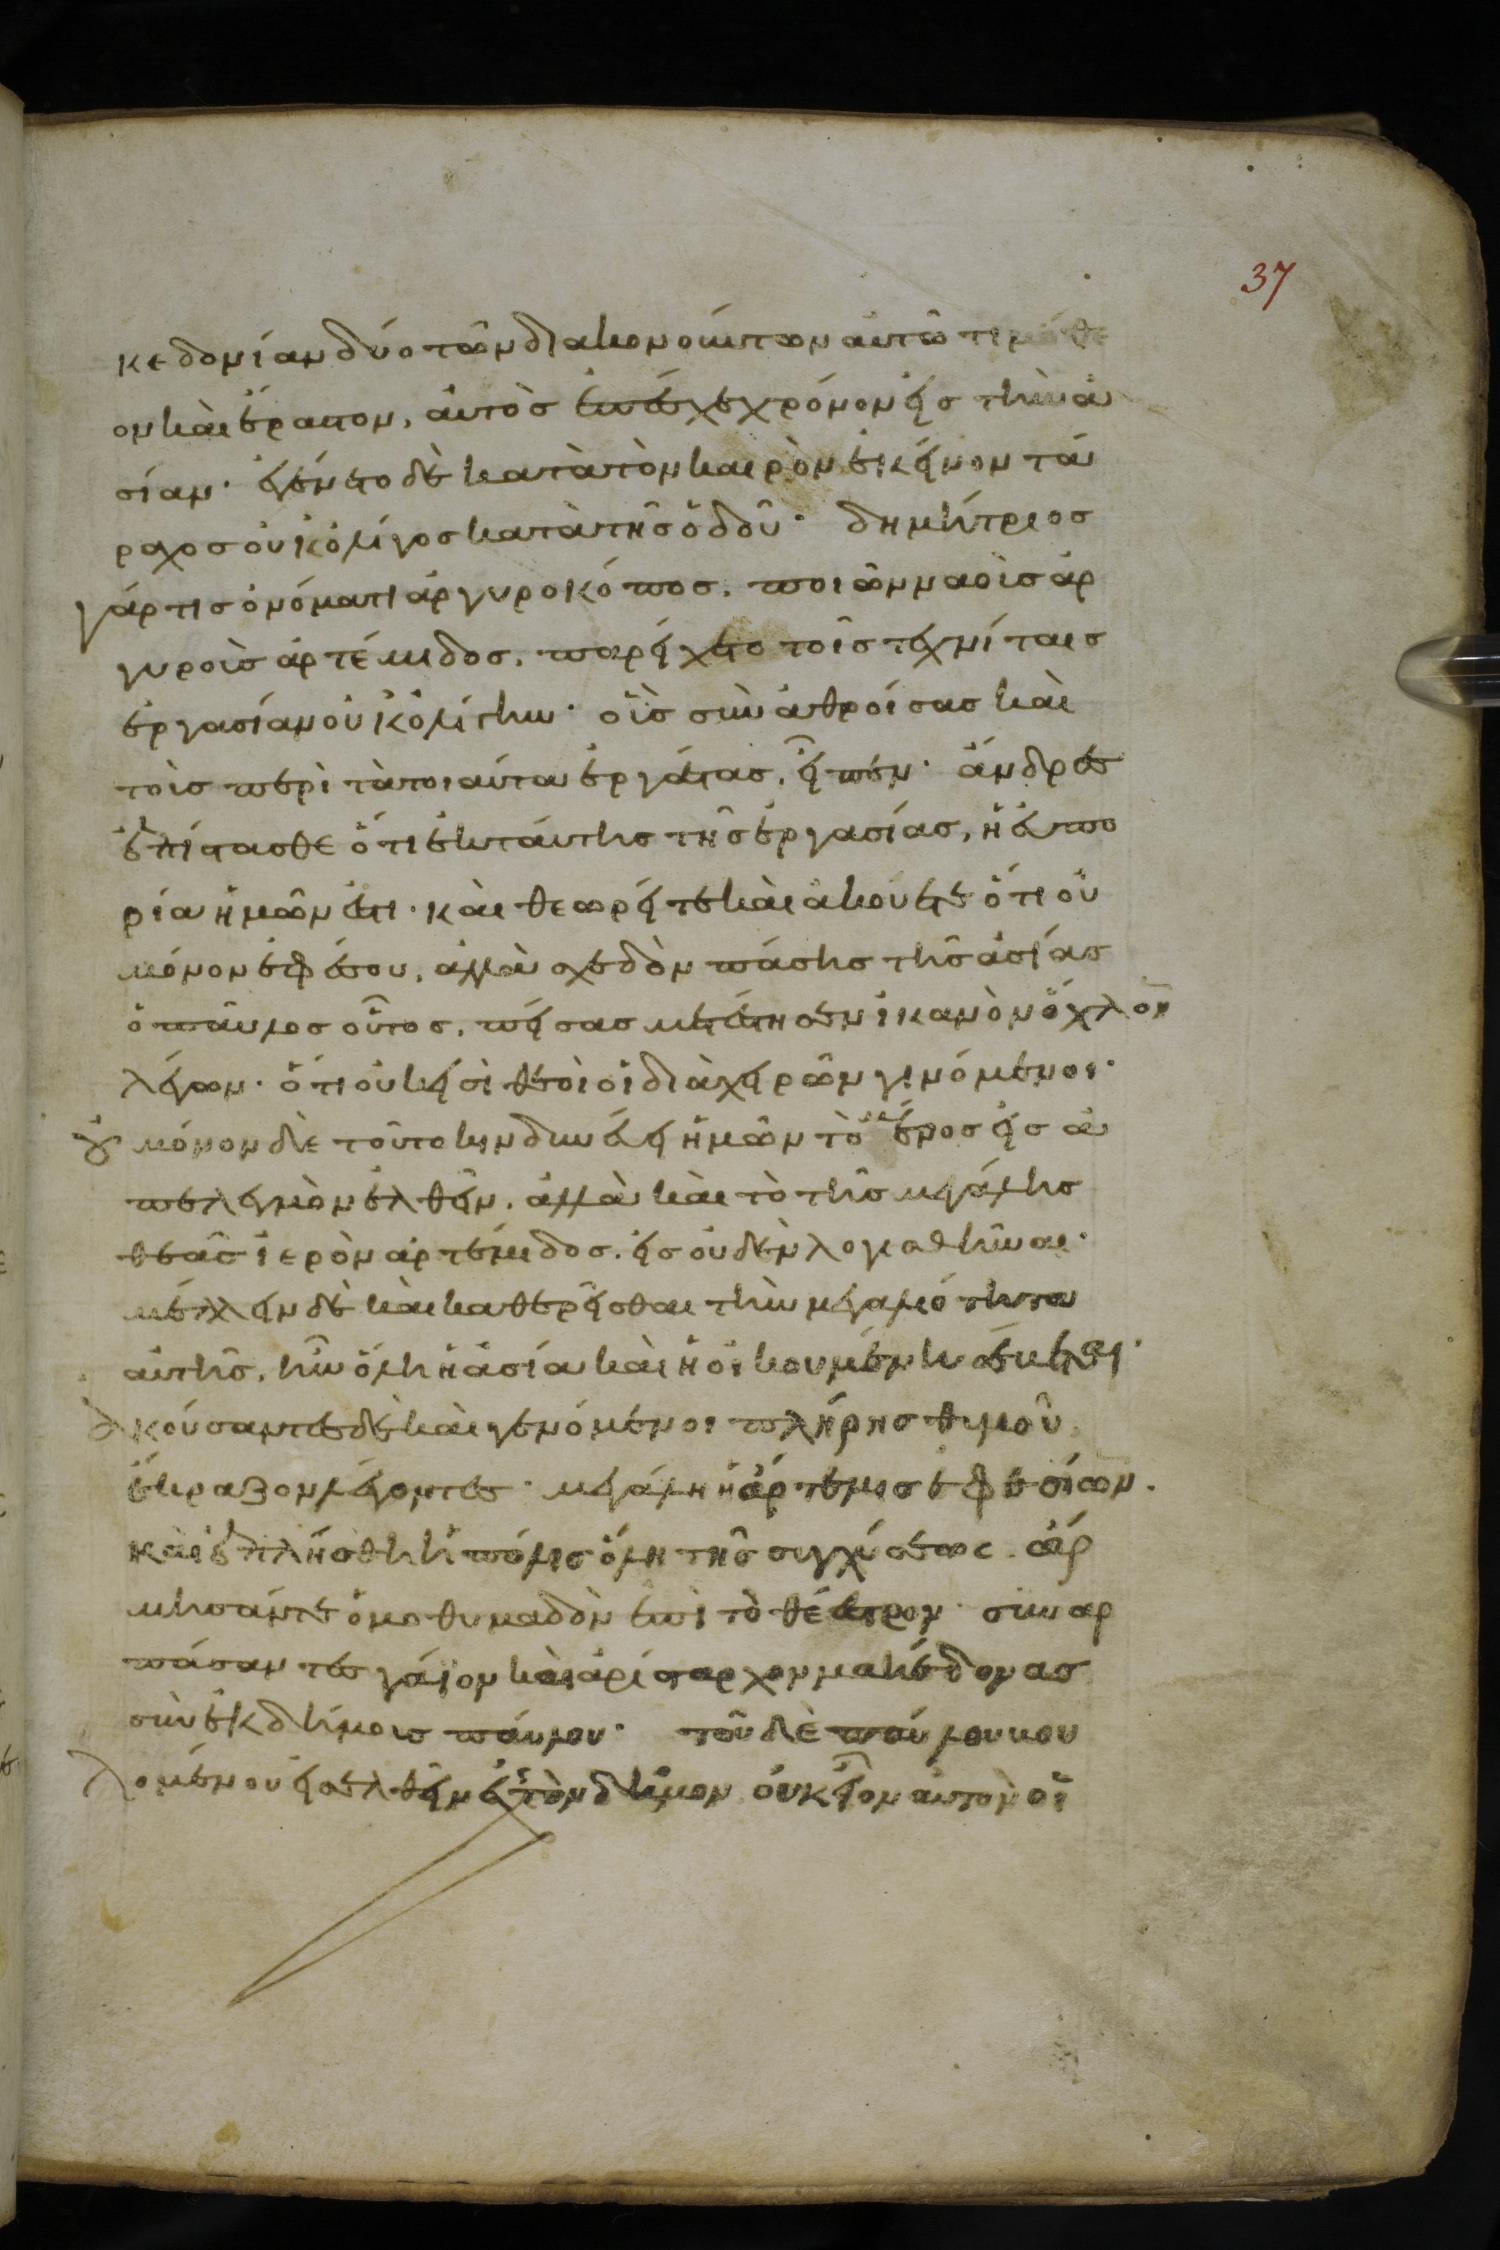 37
κεδονίαν δύο τῶν διακονούντων αὐτῶ τιμόθε
ον καὶ ἔραστον, αὐτὸς ἐπέσχε χρόνον εἰς τὴν ἀ
σίαν· ἐγένετο δὲ κατὰ τὸν καιρὸν ἐκεῖνον τά
ραχος οὐκ ὀλίγος κατὰ τῆς ὁδοῦ· δημήτριος
γάρ τις ὀνόματι ἀργυροκόπος, ποιῶν ναοὺς ἀρ
γυροὺς ἀρτέμιδος, παρείχετο τοῖς τεχνίταις
ἐργασίαν οὐκ ὀλίγην· οὓς συναθροίσας καὶ
τοὺς περὶ τὰ τοιαῦτα ἐργάτας, εἶπεν· ἄνδρες
ἐπίστασθε ὅτι ἐκ ταύτης τῆς ἐργασίας, ἡ εὐπο
ρία ἡμῶν ἐστι· καὶ θεωρεῖτε καὶ ἀκούετε ὅτι οὐ
μόνον ἐφέσου, ἀλλὰ σχεδὸν πάσης τῆς ἀσίας
ὁ παῦλος οὗτος, πείσας μετέστησεν ἱκανὸν ὄχλον
λέγων· ὅτι οὐκ εἰσὶ θεοὶ οἱ διὰ χειρῶν γινόμενοι·
οὐ μόνον δὲ τοῦτο κινδυνεύει ἡμῶν τὸ μέρος εἰς ἀ
πελεγμὸν ἐλθεῖν, ἀλλὰ καὶ τὸ τῆς μεγάλης
θεᾶς ἱερὸν ἀρτέμιδος, εἰς οὐδὲν λογισθῆναι·
μέλλειν δὲ καὶ καθερεῖσθαι τὴν μεγαλειότητα
αὐτῆς, ἣν ὅλη ἡ ἀσία καὶ ἡ οἰκουμένη σέβεται·
ἀκούσαντες δὲ καὶ γενόμενοι πλήρης θυμοῦ
ἔκραζον λέγοντες· μεγάλη ἡ ἄρτεμις ἐφεσίων.
καὶ ἐπλήσθη ἡ πόλις ὅλη τῆς συγχύσεως. ὥρ
μησάν τε ὁμοθυμαδὸν ἐπὶ τὸ θέατρον· συναρ
πάσαντες γάϊον καὶ ἀρίσταρχον μακεδονας
συνεκδήμους παύλου· τοῦ δὲ παύλου βου
λομένου εἰσελθεῖν εἰς τὸν δῆμον οὐκ εἴων αὐτὸν οἱ